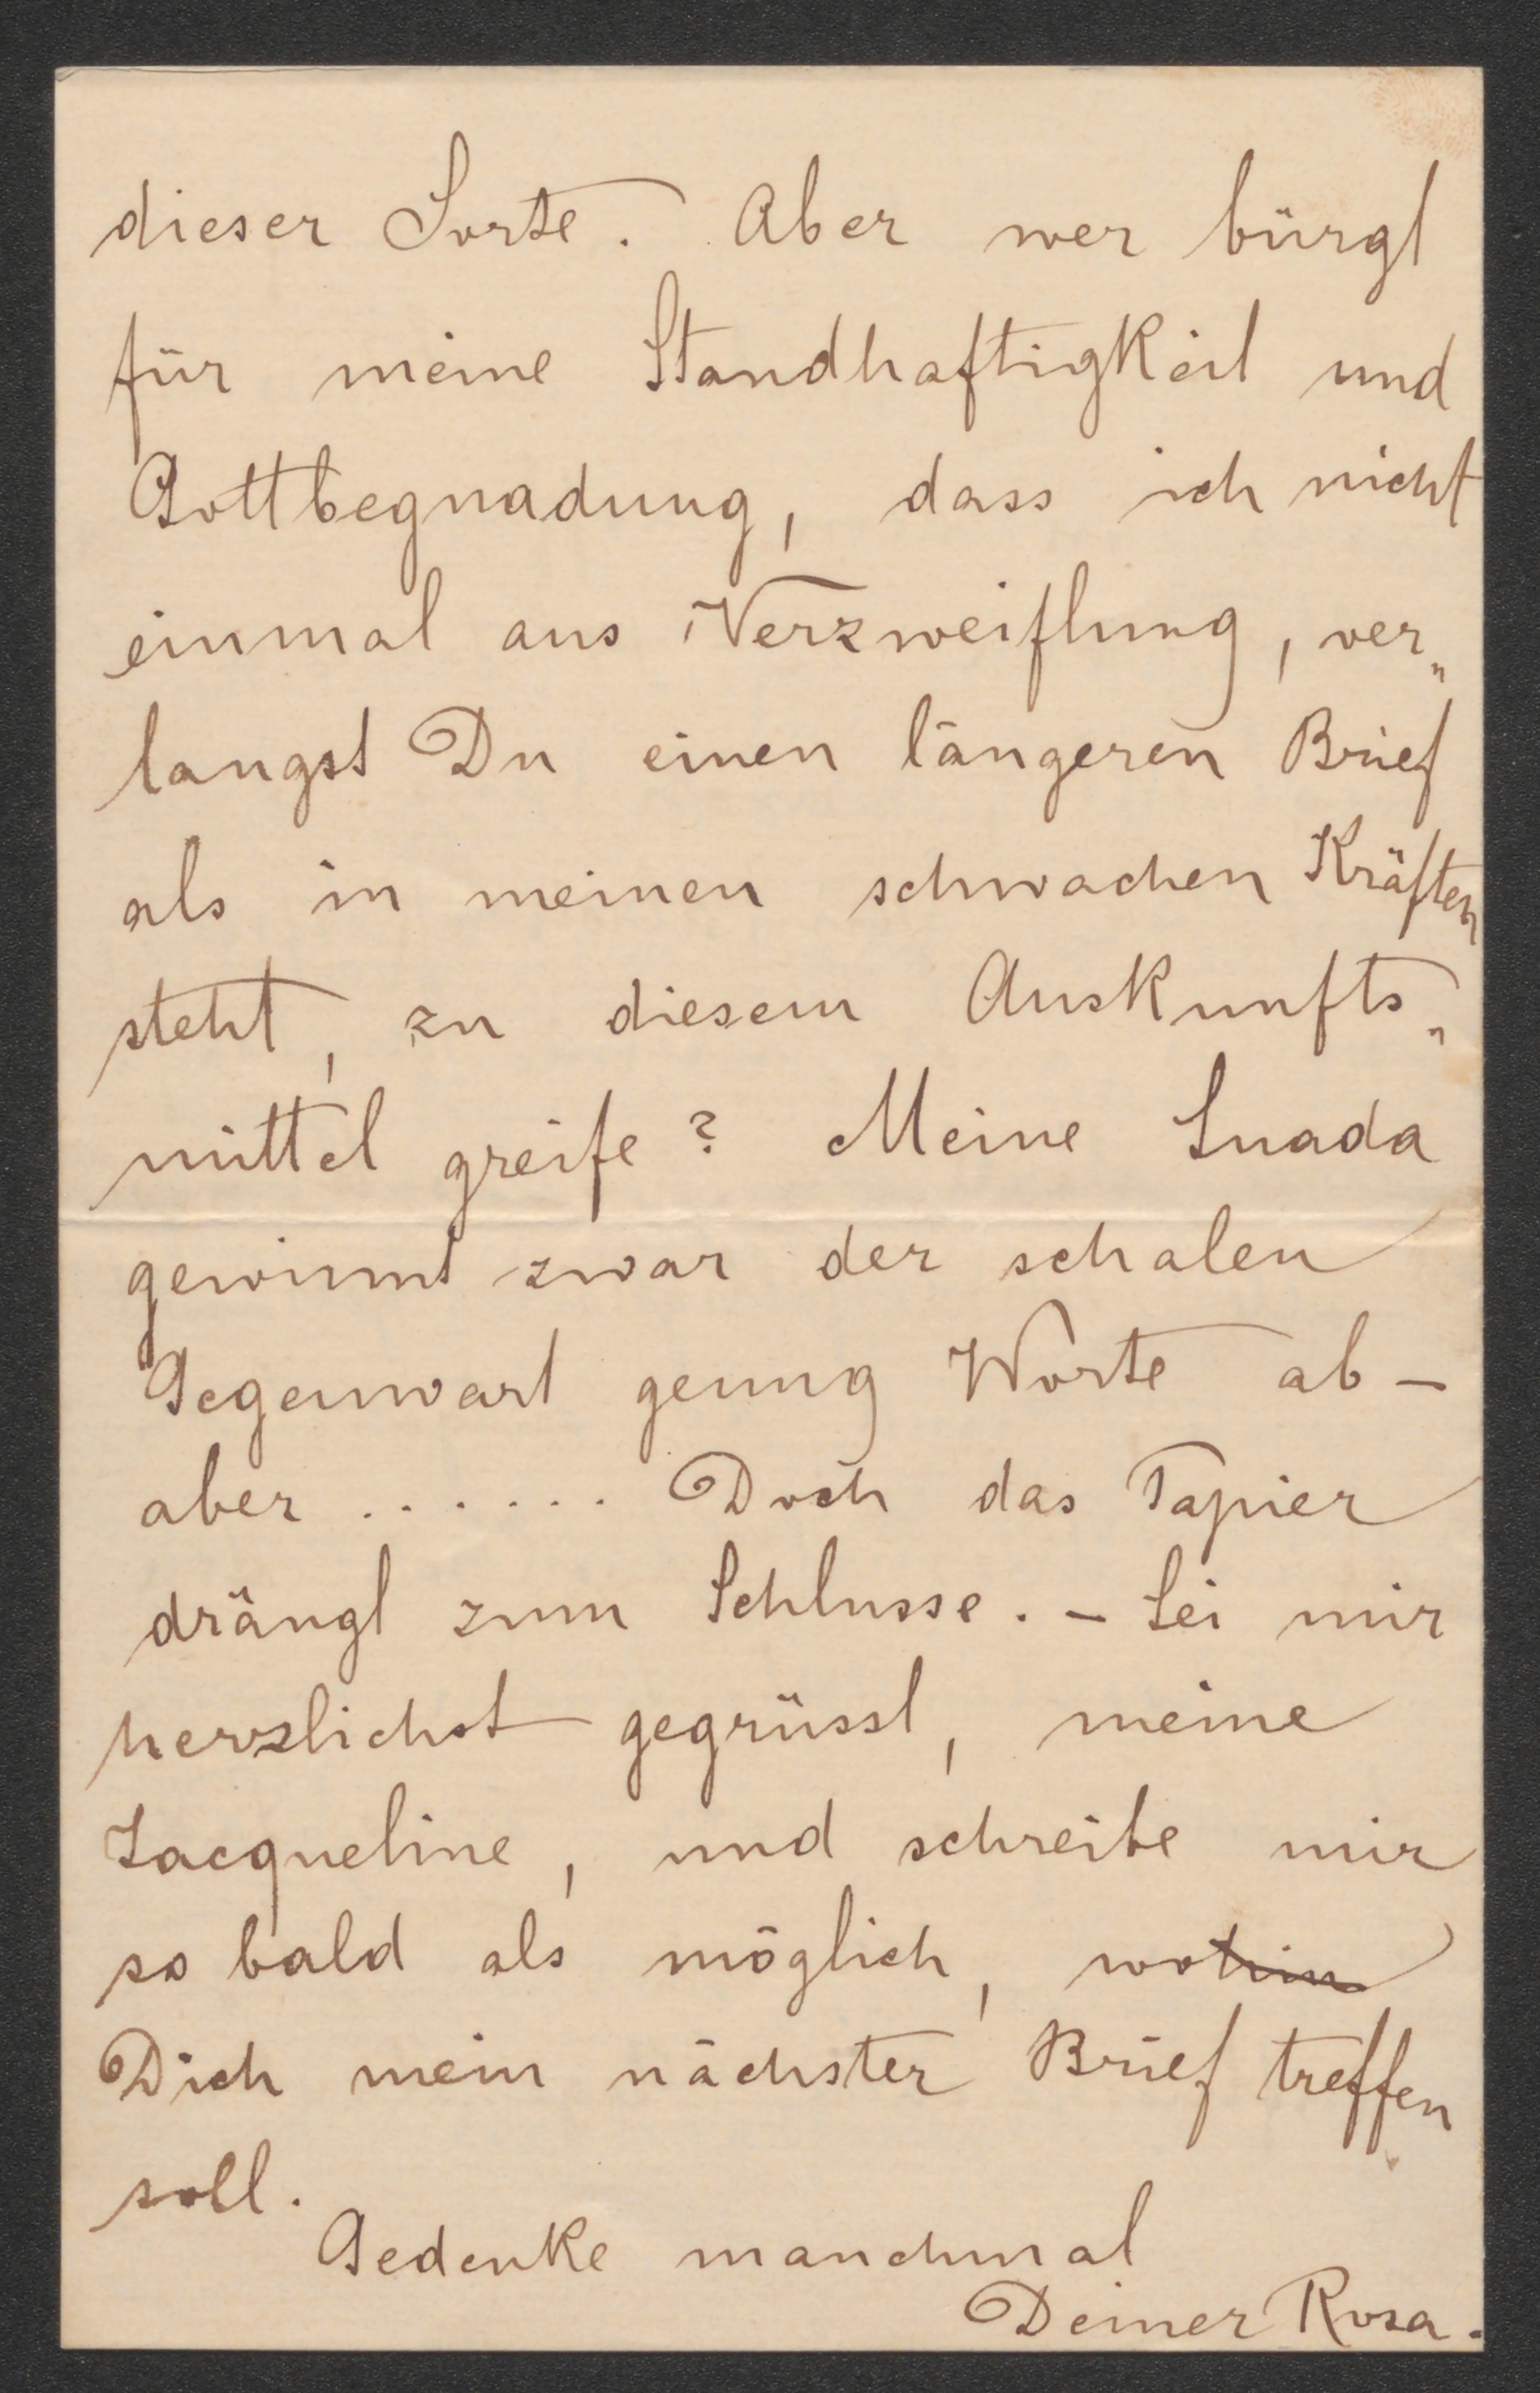 dieser Sorte. Aber wer bürgt
für meine Standhaftigkeit und
Gottbegnadung, dass ich nicht
einmal aus Verzweiflung, ver„
langst Du einen längeren Brief
als in meinen schwachen Kräften
steht, zu diesem Auskunfts„
mittel greife? Meine Suada
gewinnt zwar der schalen
Gegenwart genug Worte ab –
aber ...... Doch das Papier
drängt zum Schlusse. – Sei mir
herzlichst gegrüsst, meine
Jacqueline, und schreibe mir
so bald als möglich, wohin
Dich mein nächster Brief treffen
soll.
Gedenke manchmal
Deiner Rosa.